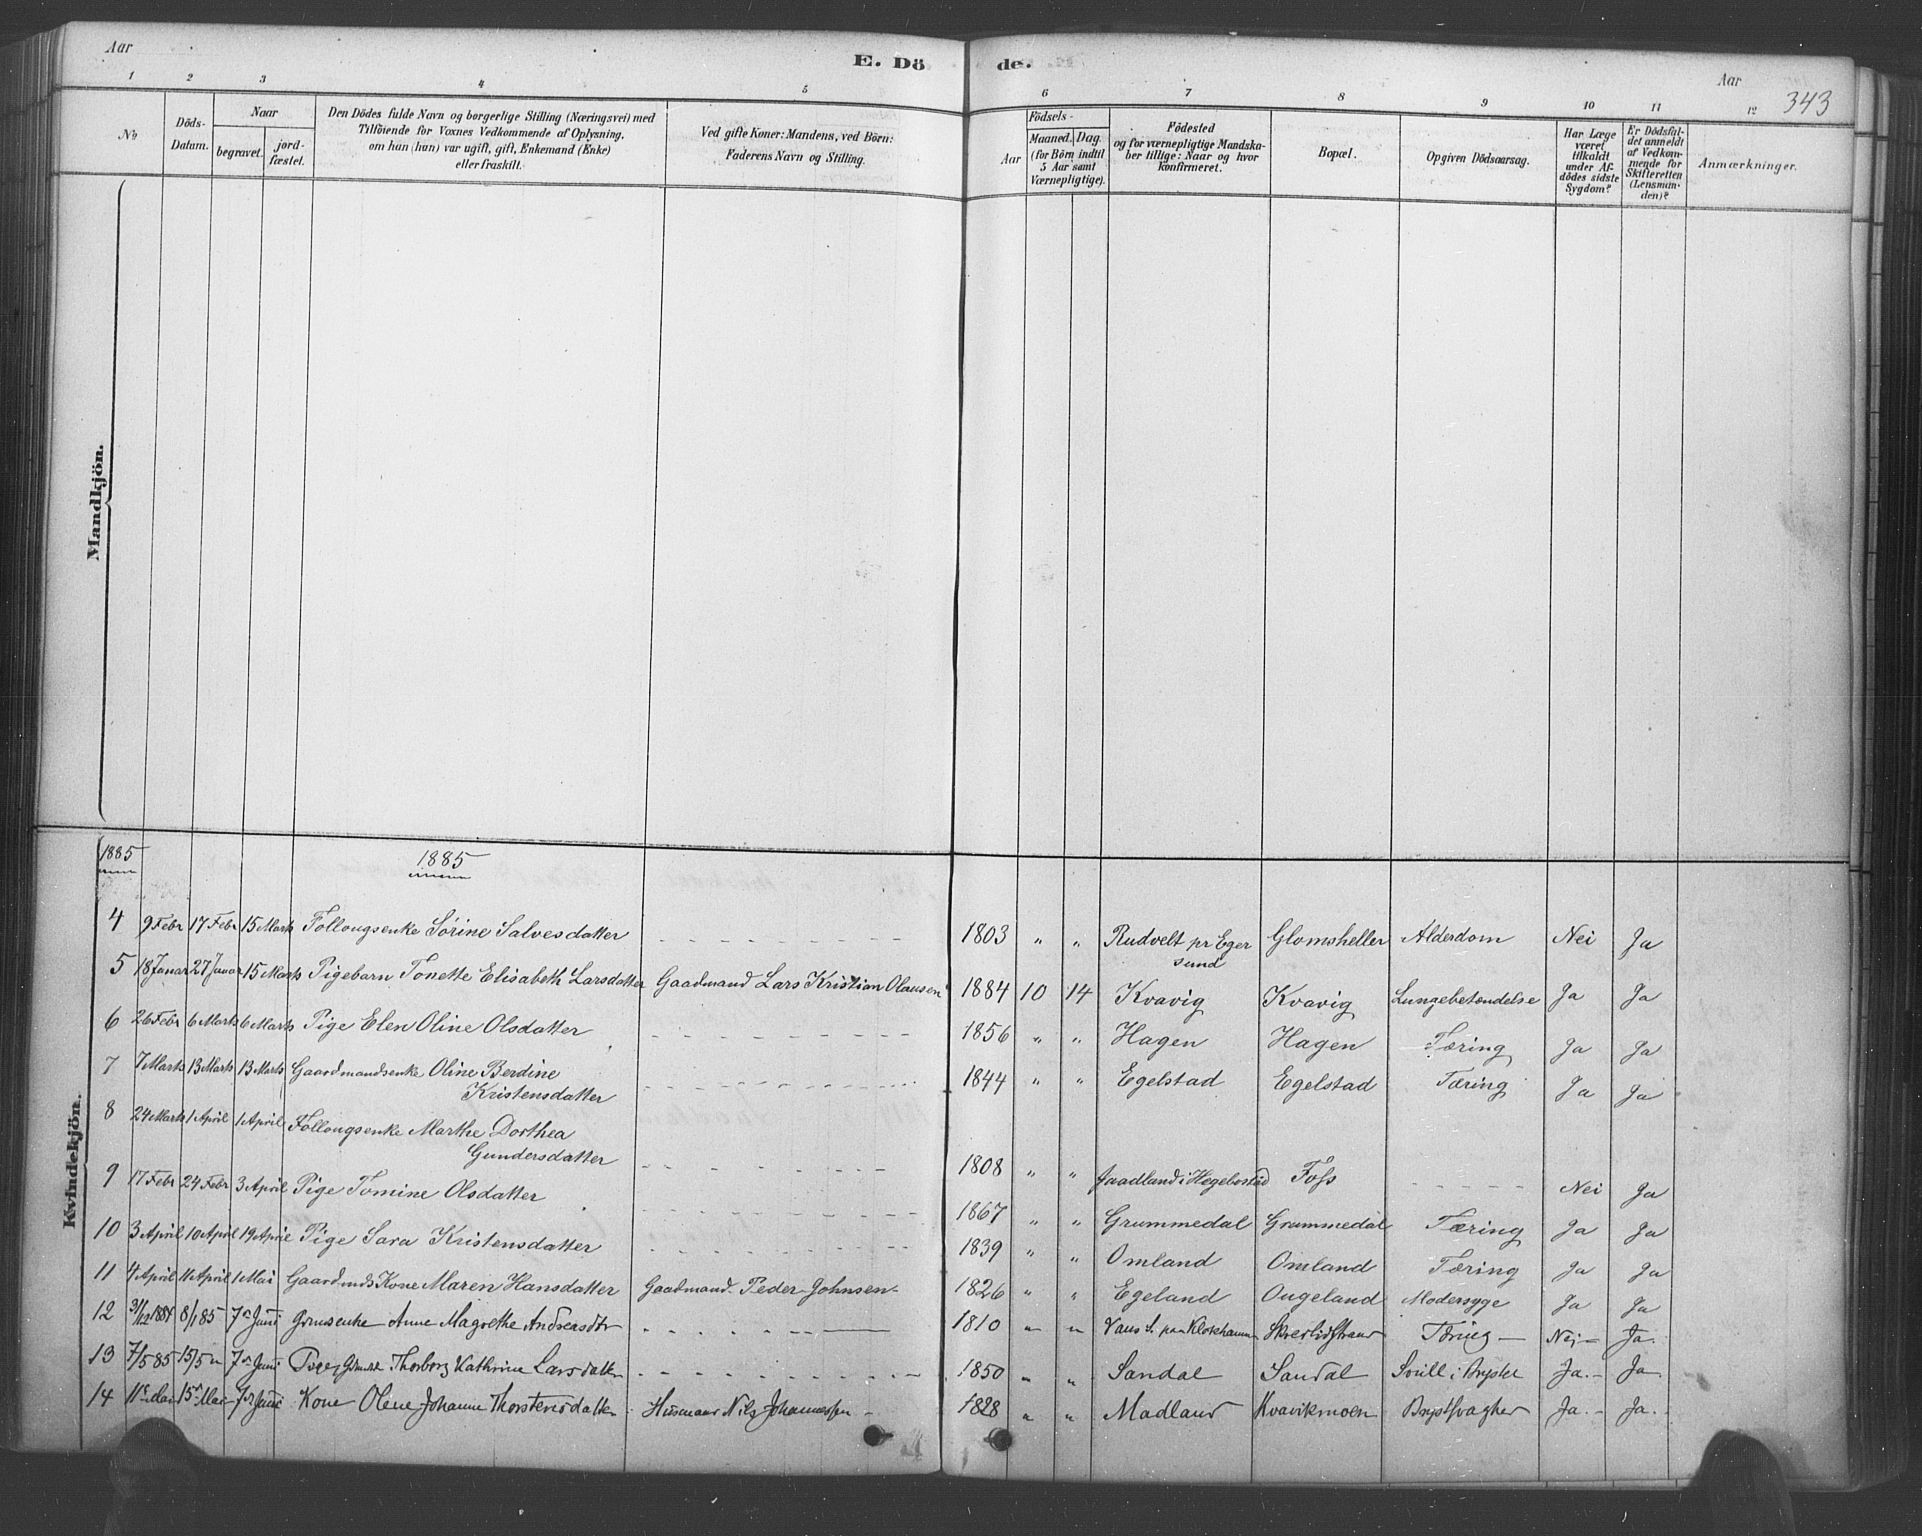 Aar
E. Dö de.
Aar
343
1 2 3 4 5 6 7 8 9 10 11 12
No
Döds-Datum.
Naar
begravet. jord-fæstet.
Den Dödes fulde Navn og borgerlige Stilling (Næringsvei) med
Tilföiende for Voxnes Vedkommende af Oplysning,
om han (hun) var ugift, gift, Enkemand (Enke)
eller fraskilt.
Ved gifte Koner: Mandens, ved Börn:
Faderens Navn og Stilling.
Födsels-
Aar
Maaned. Dag.
(for Börn indtil
5 Aar samt
Værnepligtige).
Födested
og for værnepligtige Mandska-
ber tillige: Naar og hvor
konfirmeret.
Bopæl.
Opgiven Dödsaarsag.
Har Læge
været
tilkaldt
under Af-
dödes sidste
Sygdom?
Er Dödsfal-
det anmeldt
af Vedkom-
mende for
Skifteretten
(Lensman-
den)?
Anmærkninger.
Mandkjön.
Kvindekjön.
1885
1885
4 9 Febr 17 Febr 15 Marts Follougsenke Sørine Salvesdatter 1803 " " Rudvelt pr Eger
sund Glomsheller Alderdom Nei Ja
5 18 Januar 27 Januar 15 Marts Pigebarn Tonette Elisabeth Larsdatter Gaadmand Lars Kristian Olausen 1884 10 14 Kvavig Kvavig Lungebetændelse Ja Ja
6 26 Febr 6 Marts 6 Marts Pige Elen Oline Olsdatter 1856 " " Hagen Hagen Tæring Ja Ja
7 7 Marts 13 Marts 13 Marts Gaardmandsenke Oline Berdine
Kristensdatter 1844 " " Egelstad Egelstad Tæring Ja Ja
8 24 Marts 1 April 1 April Follougsenke Marthe Dorthea
Gundersdatter 1808 " " Jaadland i Hegebostad Foss Nei Ja
9 17 Febr 24 Febr 3 April Pige Tomine Olsdatter 1867 " " Grummedal Grummedal Tæring Ja Ja
10 3 April 10 April 19 April Pige Sara Kristensdatter 1839 " " Omland Omland Tæring Ja Ja
11 4 April 11 April 1 Mai Gaardmds Kone Maren Hansdatter Gaadmand Peder Johnsen 1826 " " Egeland Ougeland Modersyge Ja Ja
12 31/12 1884 8/1 85 7de Juni Enke Anne Magrethe Andreasdtr 1810 " " Vans S. paa Klokhammer Tæring Nei Ja.
13 7/5 85 15/5 " 7de Juni Pige Thorborg Kathrine Larsdatter 1850 " " Sandal Sandal Svull i Bryster Ja. Ja.
14 11te Mai 15de Mai 7de Juni Kone Olene Johanne Thorstensdatter Husmand Nils Johannessen 1828 " " Madland Kvavikmoen Brystsvaghed Ja. Ja.